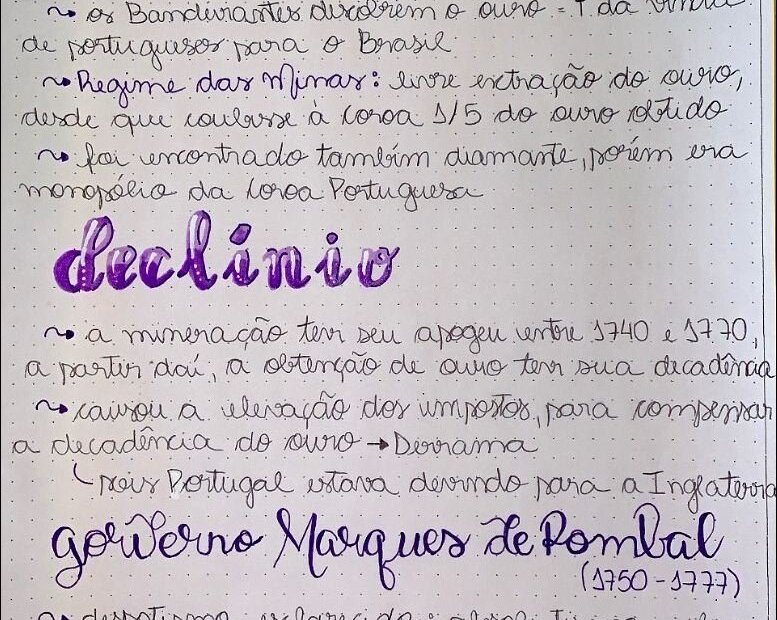 ~ os Bandeirantes descobrem o ouro = ↑ da vinda
de portugueses para o Brasil
~ Regime das Minas: livre extração do ouro,
desde que coubesse à coroa 1/5 do ouro obtido
~ foi encontrado também diamante, porém era
monopólio da Coroa Portuguesa
declínio
~ a mineração tem seu apogeu entre 1740 e 1770,
a partir daí, a obtenção de ouro tem sua decadência
~ causou a elevação dos impostos, para compensar
a decadência do ouro → Derrama
pois Portugal estava devendo para a Inglaterra
governo Marques de Pombal
(1750 - 1777)
~ despotismo esclarecido: